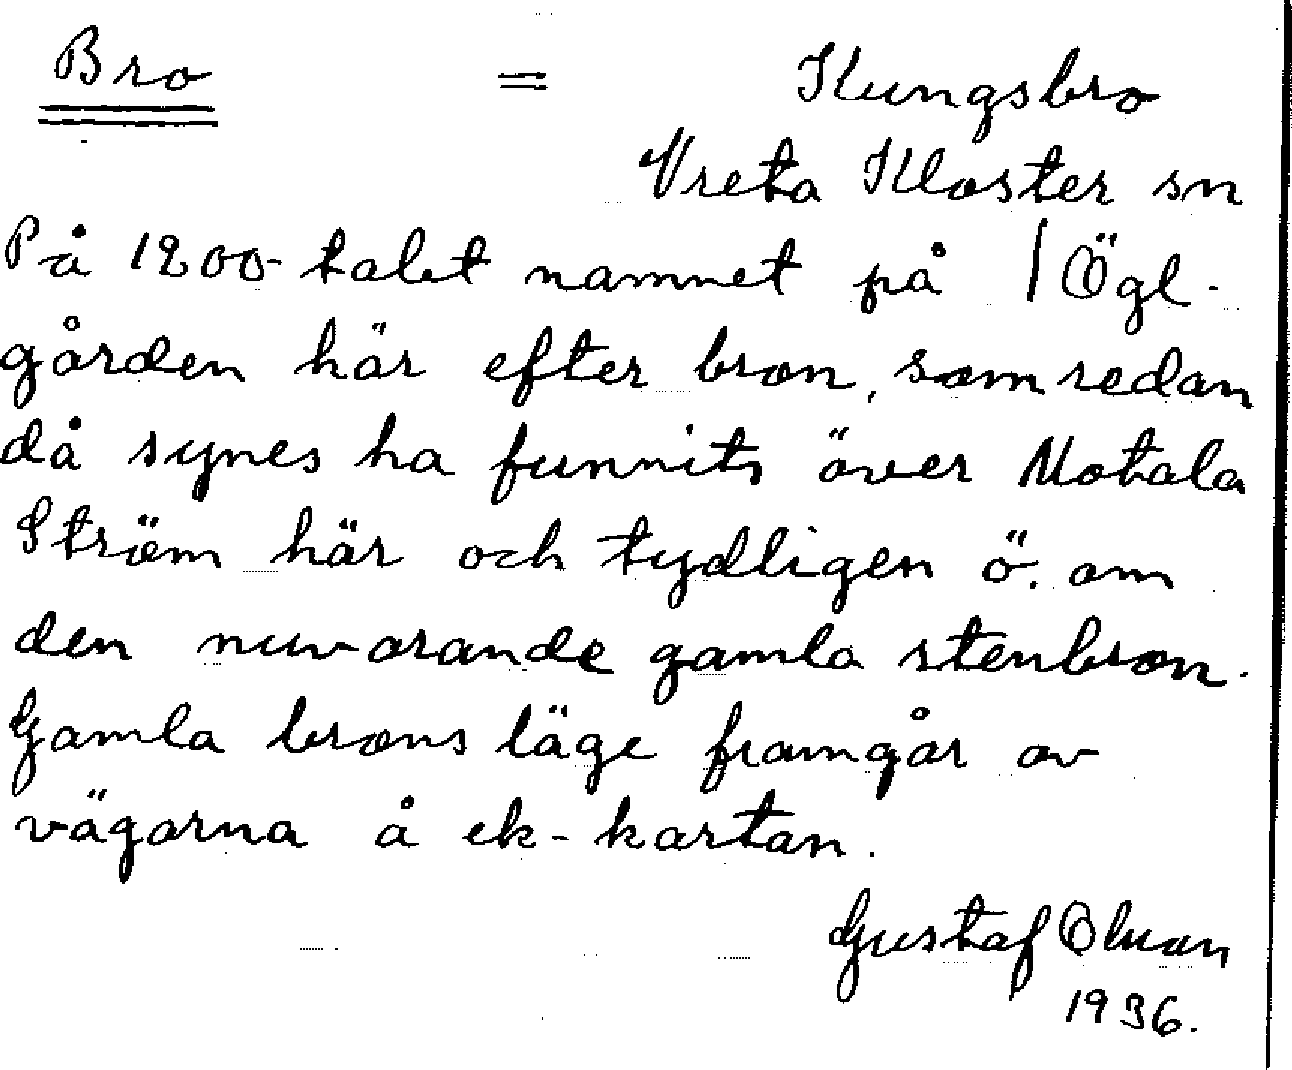 Bro = Kungsbro
Vreta Kloster sn
På 1200-talet namnet på / Ögl.
gården här efter bron, som redan
då synes ha funnits över Motala
Ström här och tydligen ö. om
den nuvarande gamla stenbron.
Gamla brons läge framgår av
vägarna å ek-kartan.
Gustaf Olsson
1936.